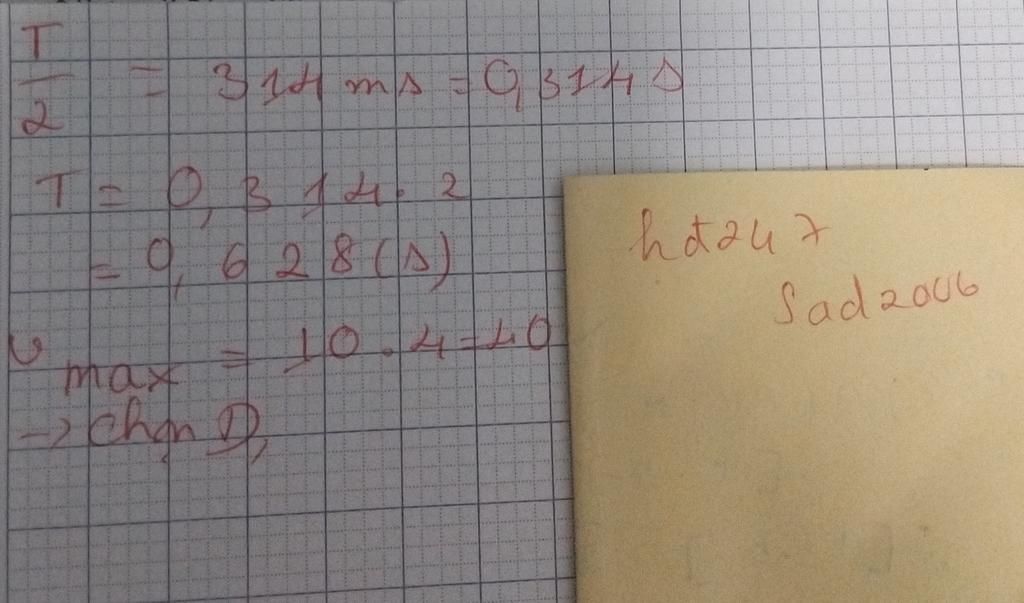 T/2 = 314 ms = 0,314 s
T = 0,314.2
= 0,628(s)
υmax = 10.4=40
→ chọn D,
hdt247
Sad2006